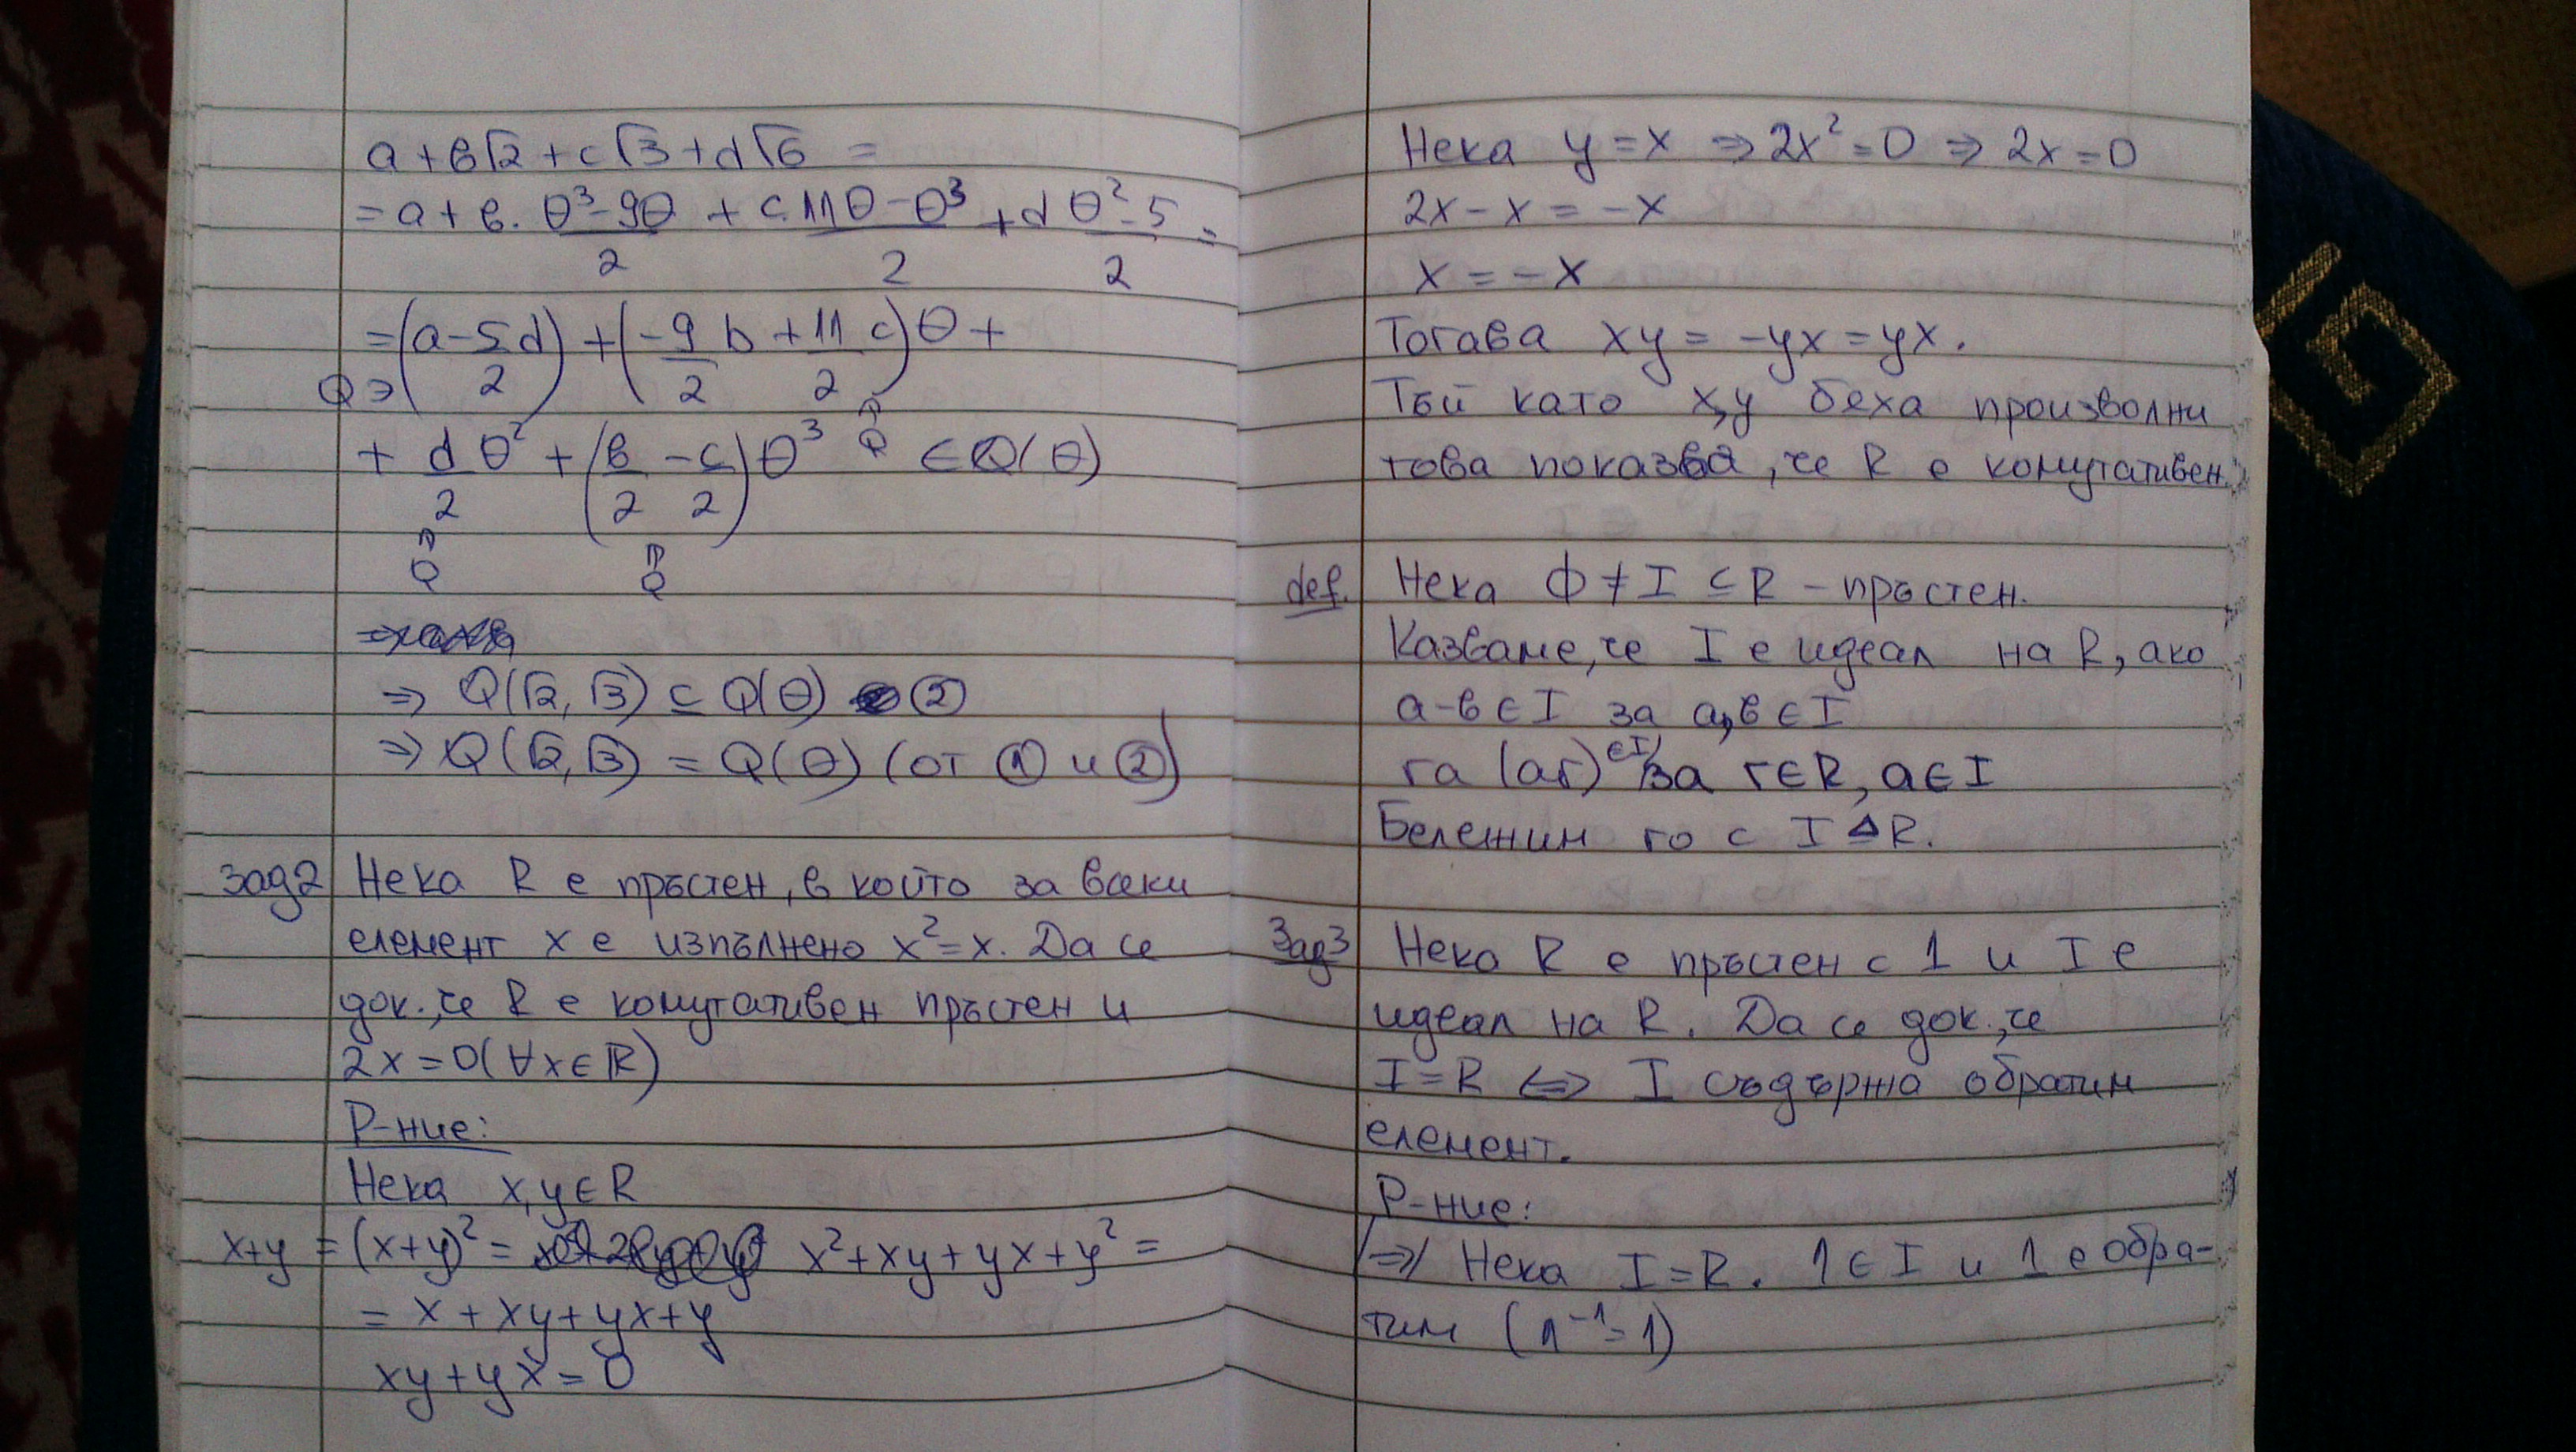 a+b√2+c√3+d√6 =
= a + b. (θ³-9θ)/2 + c. (11θ-θ³)/2 + d (θ²-5)/2 =
Q∋ = (a - 5d/2) + (-9/2 b + 11/2 c)θ + ∈Q
+ d/2 θ² + (b/2 - c/2)θ³ ∈ Q(θ)
∈Q ∈Q
⇒ Q(√2, √3) ⊆ Q(θ) ②
⇒ Q(√2, √3) = Q(θ) (от ① и ②)
Зад2 Нека R е пръстен, в който за всеки
елемент x е изпълнено x²=x. Да се
док., че R е комутативен пръстен и
2x=0(∀x∈R)
Р-ние:
Нека x,y∈R
x+y = (x+y)² = x²+xy+yx+y² =
= x+xy+yx+y
xy+yx=0
Нека y=x ⇒ 2x²=0 ⇒ 2x=0
2x-x=-x
x=-x
Тогава xy=-yx=yx.
Тъй като x,y бяха произволни
това показва, че R е комутативен.
def. Нека Φ≠I⊆R - пръстен.
Казваме, че I е идеал на R, ако
a-b∈I за a,b∈I
ra (ar) ∈I за r∈R, a∈I
Бележим го с I⊴R.
Зад3 Нека R е пръстен с 1 и I е
идеал на R. Да се док., че
I=R ⇔ I съдържа обратим
елемент.
Р-ние:
/⇒/ Нека I=R. 1∈I и 1 е обра-
тим (1⁻¹=1)